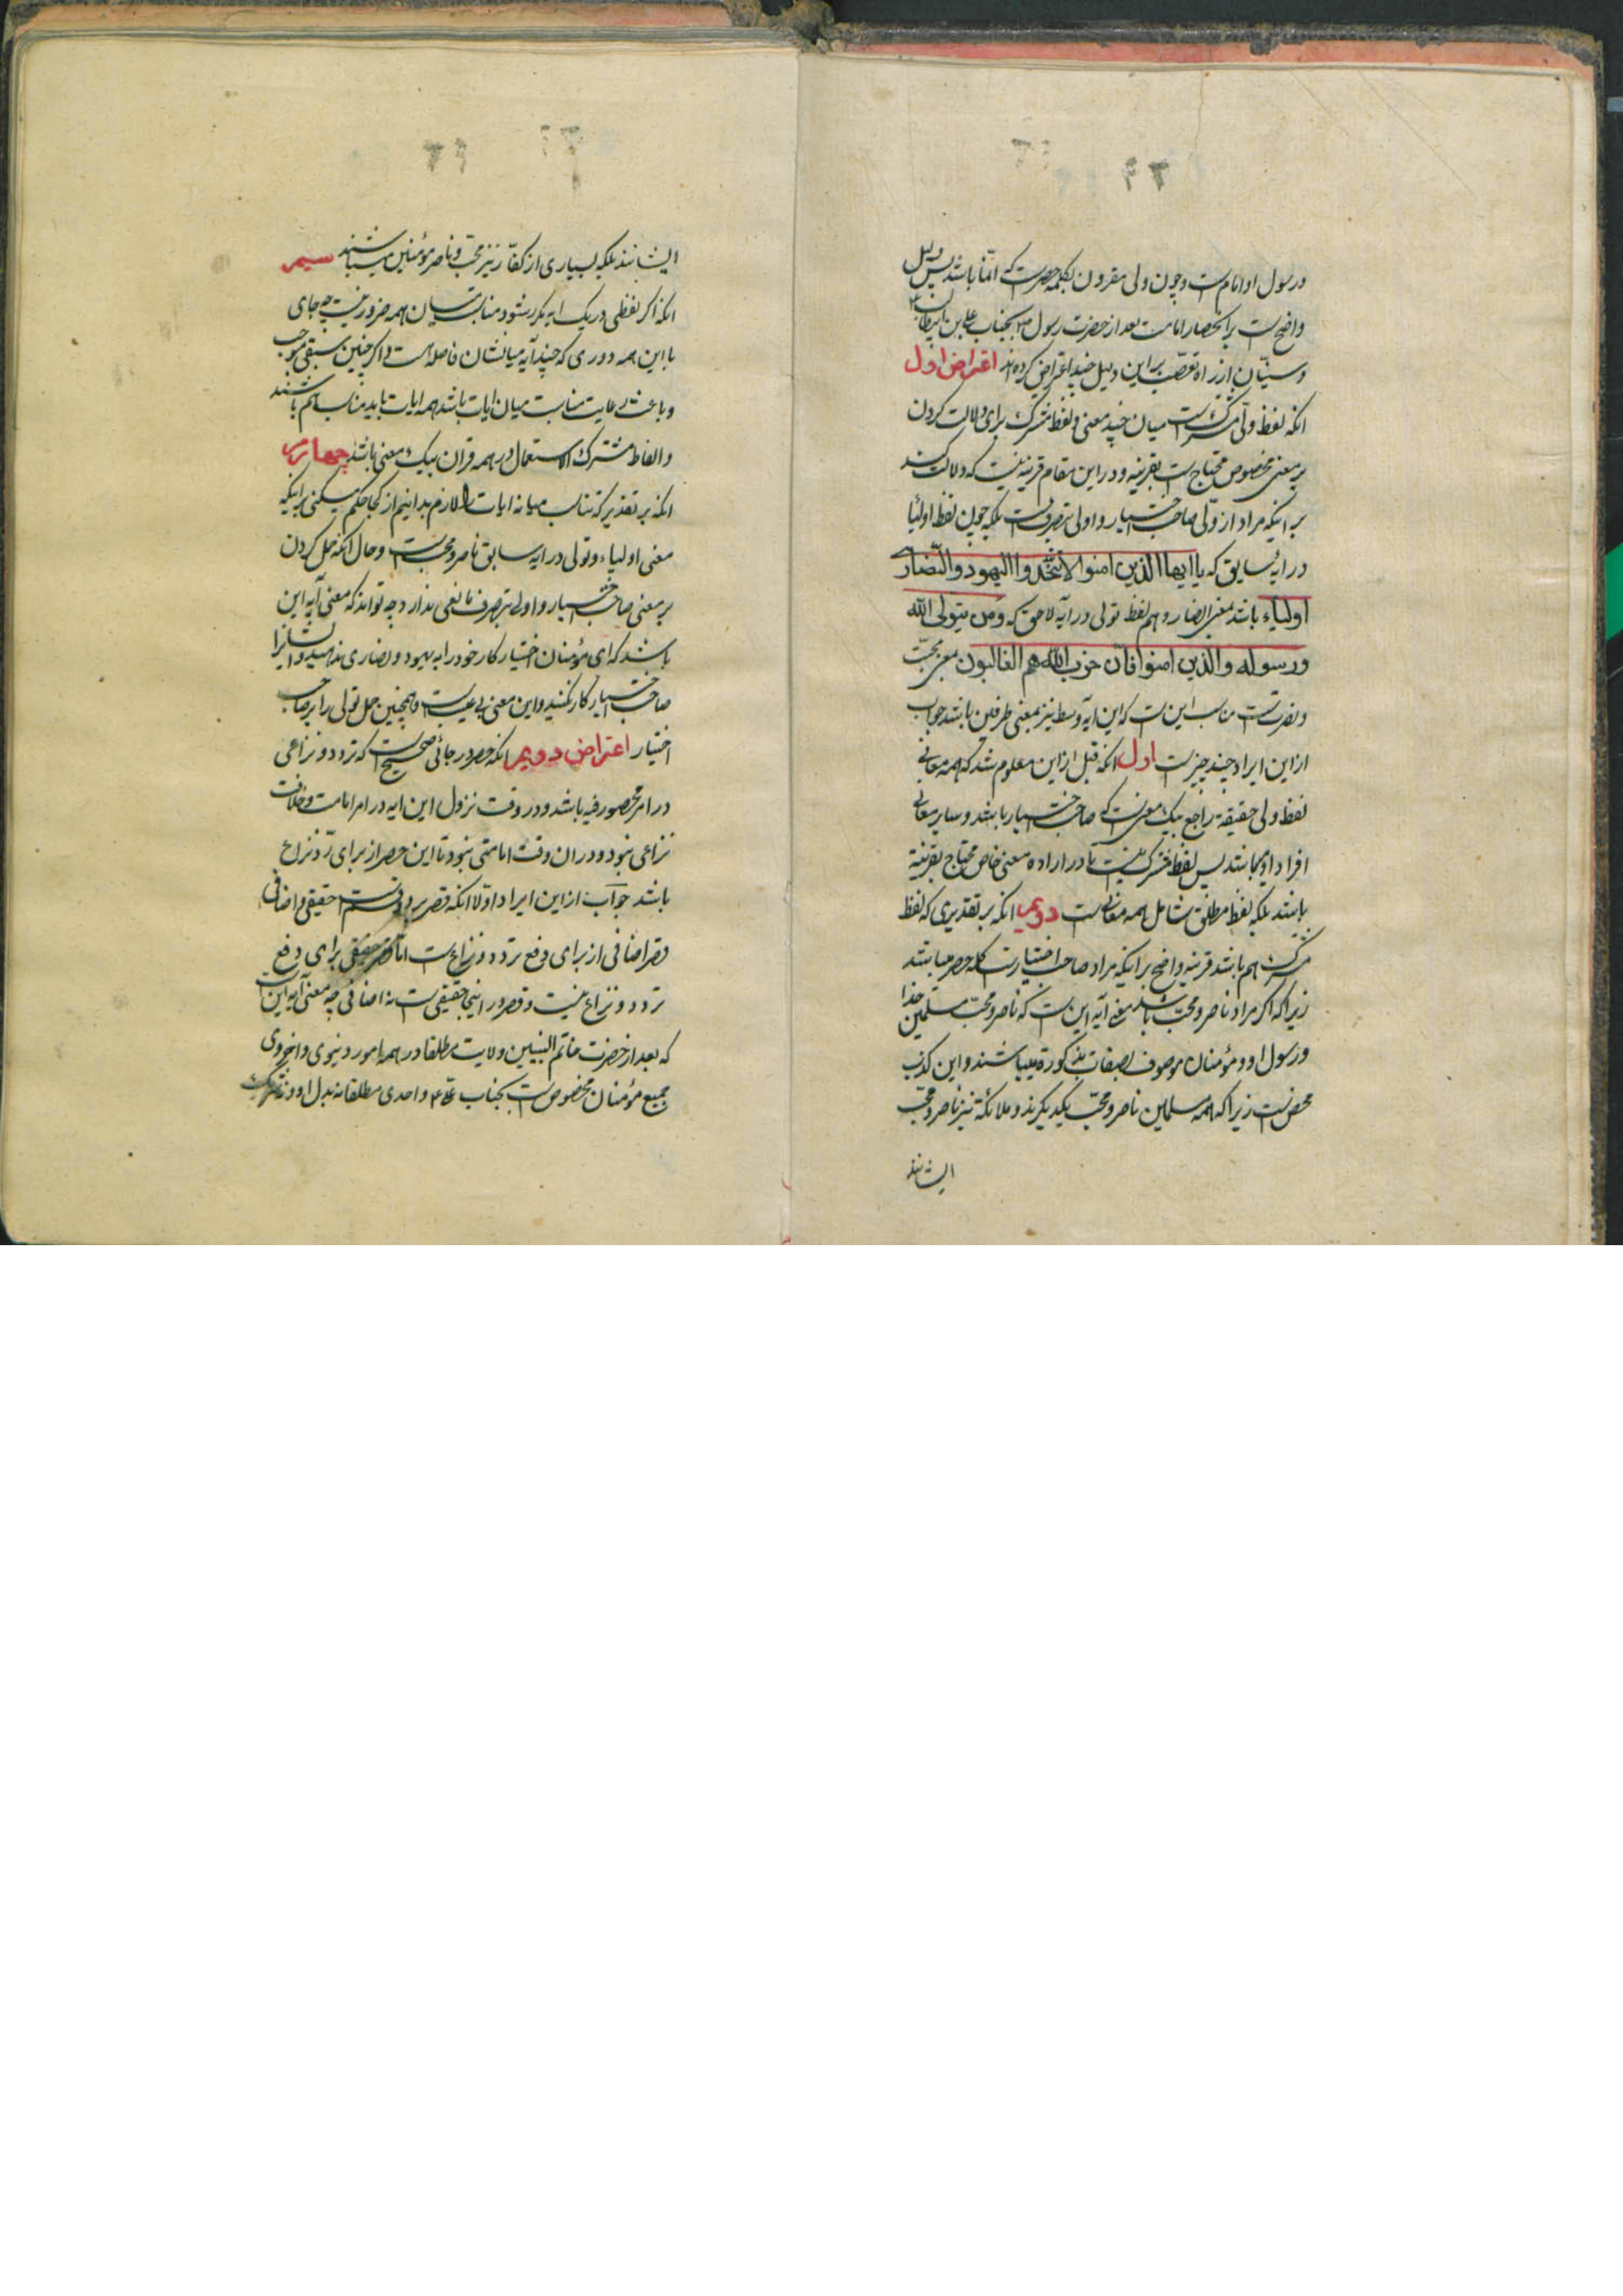 ورسول او امام است وچون ولی مقرون بکلمه حصرست که انما باشد پس دلیل
واضح است بر انحصار امامت بعد از حضرت رسول ص بجناب علی بن ابیطالب ع
وسنیّان از راه تعصّب بر این دلیل چند اعتراض کرده اند اعتراض اول
انکه لفظ ولی مشترکست میان چند معنی ولفظ مشترک برای دلالت کردن
بر معنی مخصوص محتاج است بقرینه ودر این مقام قرینه نیست که دلالت کند
بر اینکه مراد از ولی صاحب اختیار و اولی بتصرفست بلکه چون لفظ اولیا
در ایهٔ سابق که یا ایها الذین امنوا لا تتخذوا الیهود والنصاری
اولیاء باشد بمعنی انصار وهم لفظ تولی در آیه لاحق که ومن یتولی الله
ورسوله والذین امنوا فان حزب الله هم الغالبون بمعنی محبّت
ونصرتست مناسب این است که این ایه وسط نیز بمعنی طرفین باشد جواب
از این ایراد چند چیزست اول انکه قبل از این معلوم شد که همه معانی
لفظ ولی حقیقة راجع بیک معنی است که صاحب اختیار باشد وسایر معانی
افراد او میباشند پس لفظ مشترک نیست تا در اراده معنی خاص محتاج بقرینة
باشد بلکه لفظ مطلق شامل همه معانی است دویم انکه بر تقدیری که لفظ
مشترک هم باشد قرینه واضح بر اینکه مراد صاحب اختیارست کله حصر میباشد
زیرا که اکر مراد ناصر ومحبّ باشد معنی ایه این است که ناصر ومحبّ مسلمین خدا
ورسول او ومؤمنان موصوف بصفات مذکورة میباشند واین کذب
محض است زیرا که همه مسلمین ناصر ومحبّ یکدیکرند وملائکة نیز ناصر ومحبّ
ایشانند
ایشانند بلکه بسیاری از کفّار نیز محبّ وناصر مؤمنین میباشند سیم
انکه اکر لفظی در یک ایه مکرر شود مناسبت میان همه ضرور نیست چه جای
با این همه دوری که چند آیه میانشان فاصله است واکر چنین سبقی موجب
وباعث رعایت مناسبت میان ایات باشد همه ایات باید مناسب هم باشند
والفاظ مشترک الاستعمال در همه قران بیک معنی باشد چهارم
انکه بر تقدیر که تناسب میانه ایات را لازم بدانیم از کجا حکم میکنی بر اینکه
معنی اولیاء وتولی در ایه سابق ناصر ومحبست وحال انکه حمل کردن
بر معنی صاحب اختیار واولی بتصرف مانعی ندارد چه تواند که معنی آیه این
باشد که ای مؤمنان اختیار کار خود را به یهود ونصاری ندهید وایشانرا
صاحب اختیار کار نکنید واین معنی بی عیب است وهمچنین حمل تولی را بر صاحب
اختیار اعتراض دویم انکه حصر در جائی صحیح است که تردد ونزاعی
در امر محصور فیه باشد ودر وقت نزول این ایه در امر امامت وخلافت
نزاعی نبود ودر ان وقت امامتی نبود تا این حصر از برای ردّ نزاع
باشد جواب از این ایراد اولا انکه قصر بر دو قسمست حقیقی واضافی
قصر اضافی از برای دفع تردد ونزاع است امّا قصر حقیقی برای دفع
تردد ونزاع نیست وقصر در اینجا حقیقی است نه اضافی چه معنی آیه این است
که بعد از حضرت خاتم النبیین ولایت مطلقا در همه امور دنیوی واخروی
جمیع مؤمنان مخصوص است بجناب علی ع واحدی مطلقا نه بدل او ونه شریک